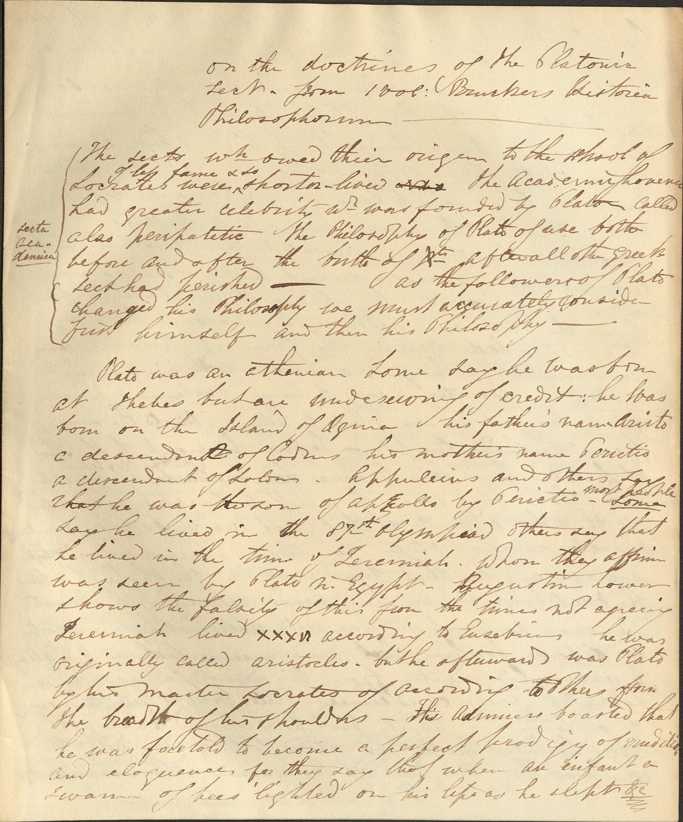 on the doctrines of the Platonic
sect - from 1 vol: Bruckers Historia
Philosophorum
The sects wh owed thier origen to the school of
of less fame & so
Socrates were shorter lived the Academic however
had greater celebrity wh was founded by Plato called
secta
aca-
demica
alas peripatetic The Philosophy of Plato of use both
before and after the birth of Xts after all other greek
sects had perished — as the followers of Plato
changed his Philosophy we must accurately consider
first himself and then his Philosophy —
Plato was an athenian some say he was born
at Thebes but are undeserving of credit: he was
born on the Island of Egina his father's name Aristo
a descendent of Codrus his mother's name Perictio
a descendent of Solons - Appuleius and others say
that he was the son of apollo by Perictio - most people
some
say he lived in the 87th Olympiad others say that
he lived in the time of Jeremiah. Whom they affirm
was seen by Plato in Egypt - Augustin however
shows the falsity of this from the times not agreeing
Jeremiah lived according to Eusebius he was
originally called aristocles - but he afterwards was Plato
by his master Socrates or according to others from
the breadth of his shoulders - His admirers boasted that
he was foretold to become a perfect prodigy of erudition
and eloquence for they say that when an infant a
swarm of bees lighted on his lips as he slept &c